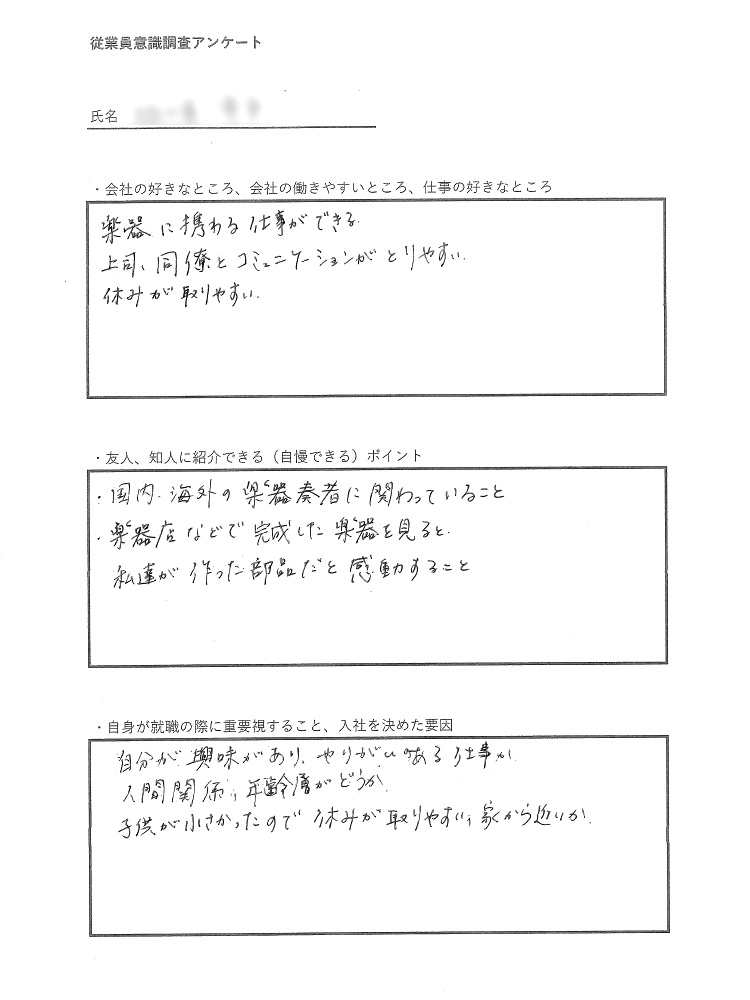 従業員意識調査アンケート
氏名
・会社の好きなところ、会社の働きやすいところ、仕事の好きなところ
楽器に携わる仕事ができる.
上司、同僚とコミュニケーションがとりやすい.
休みが取りやすい.
・友人、知人に紹介できる（自慢できる）ポイント
・国内.海外の楽器奏者に関わっていること
・楽器店などで完成した楽器を見ると.
私達が作った部品だと感動すること
・自身が就職の際に重要視すること、入社を決めた要因
自分が興味があり、やりがいのある仕事か.
人間関係、年齢層がどうか.
子供が小さかったので休みが取りやすい、家から近いか.